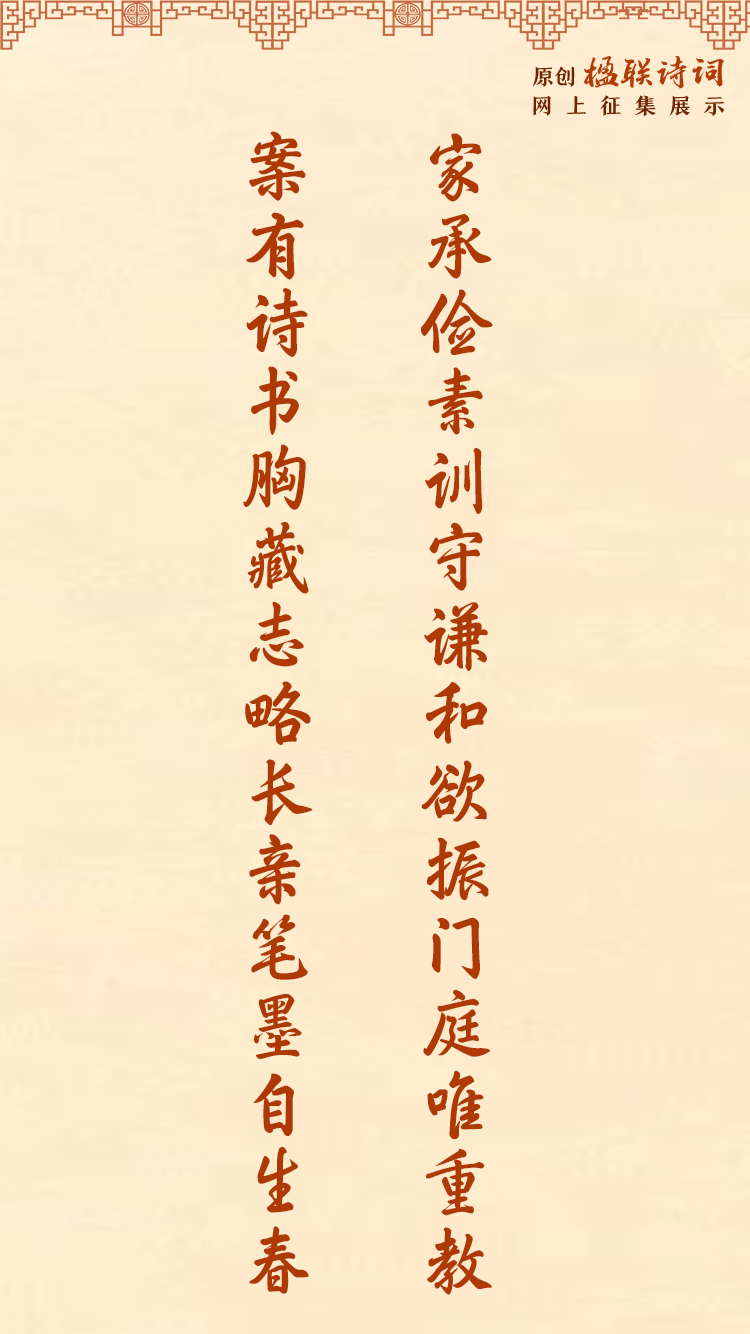 原创楹联诗词
网上征集展示
家承俭素训守谦和欲振门庭唯重教
案有诗书胸藏志略长亲笔墨自生春